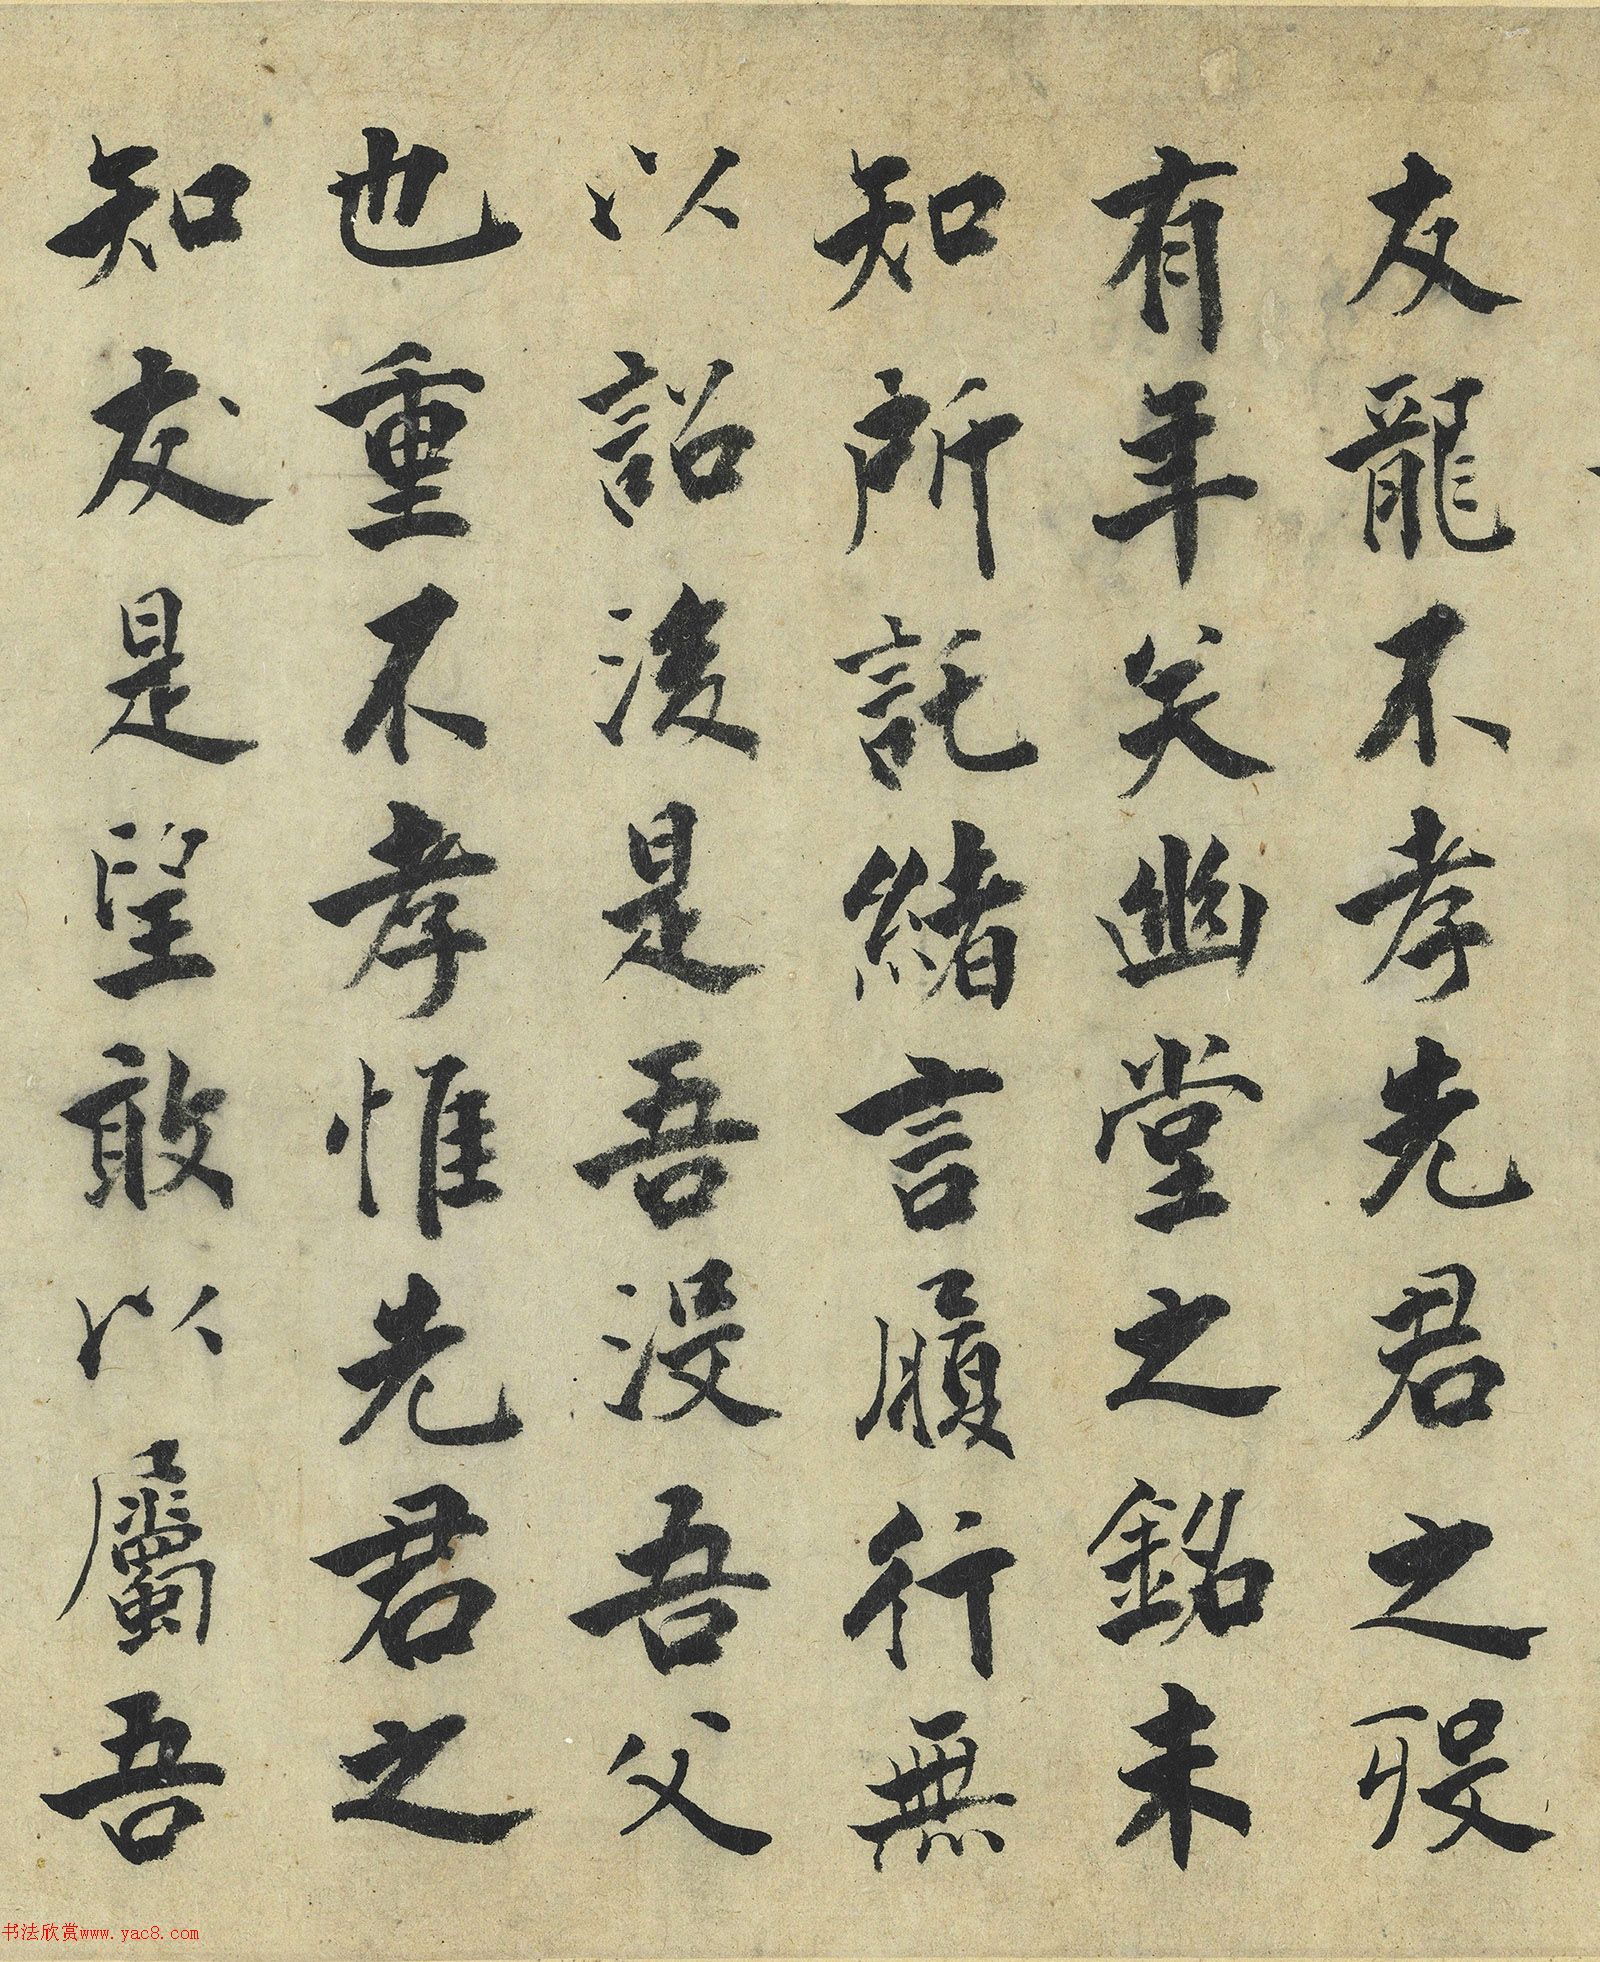 友龍不孝先君之歿
有年矣幽堂之銘未
知所託緒言履行無
以詔後是吾没吾父
也重不孝惟先君之
知友是望敢以屬吾
书法欣赏www.yac8.com